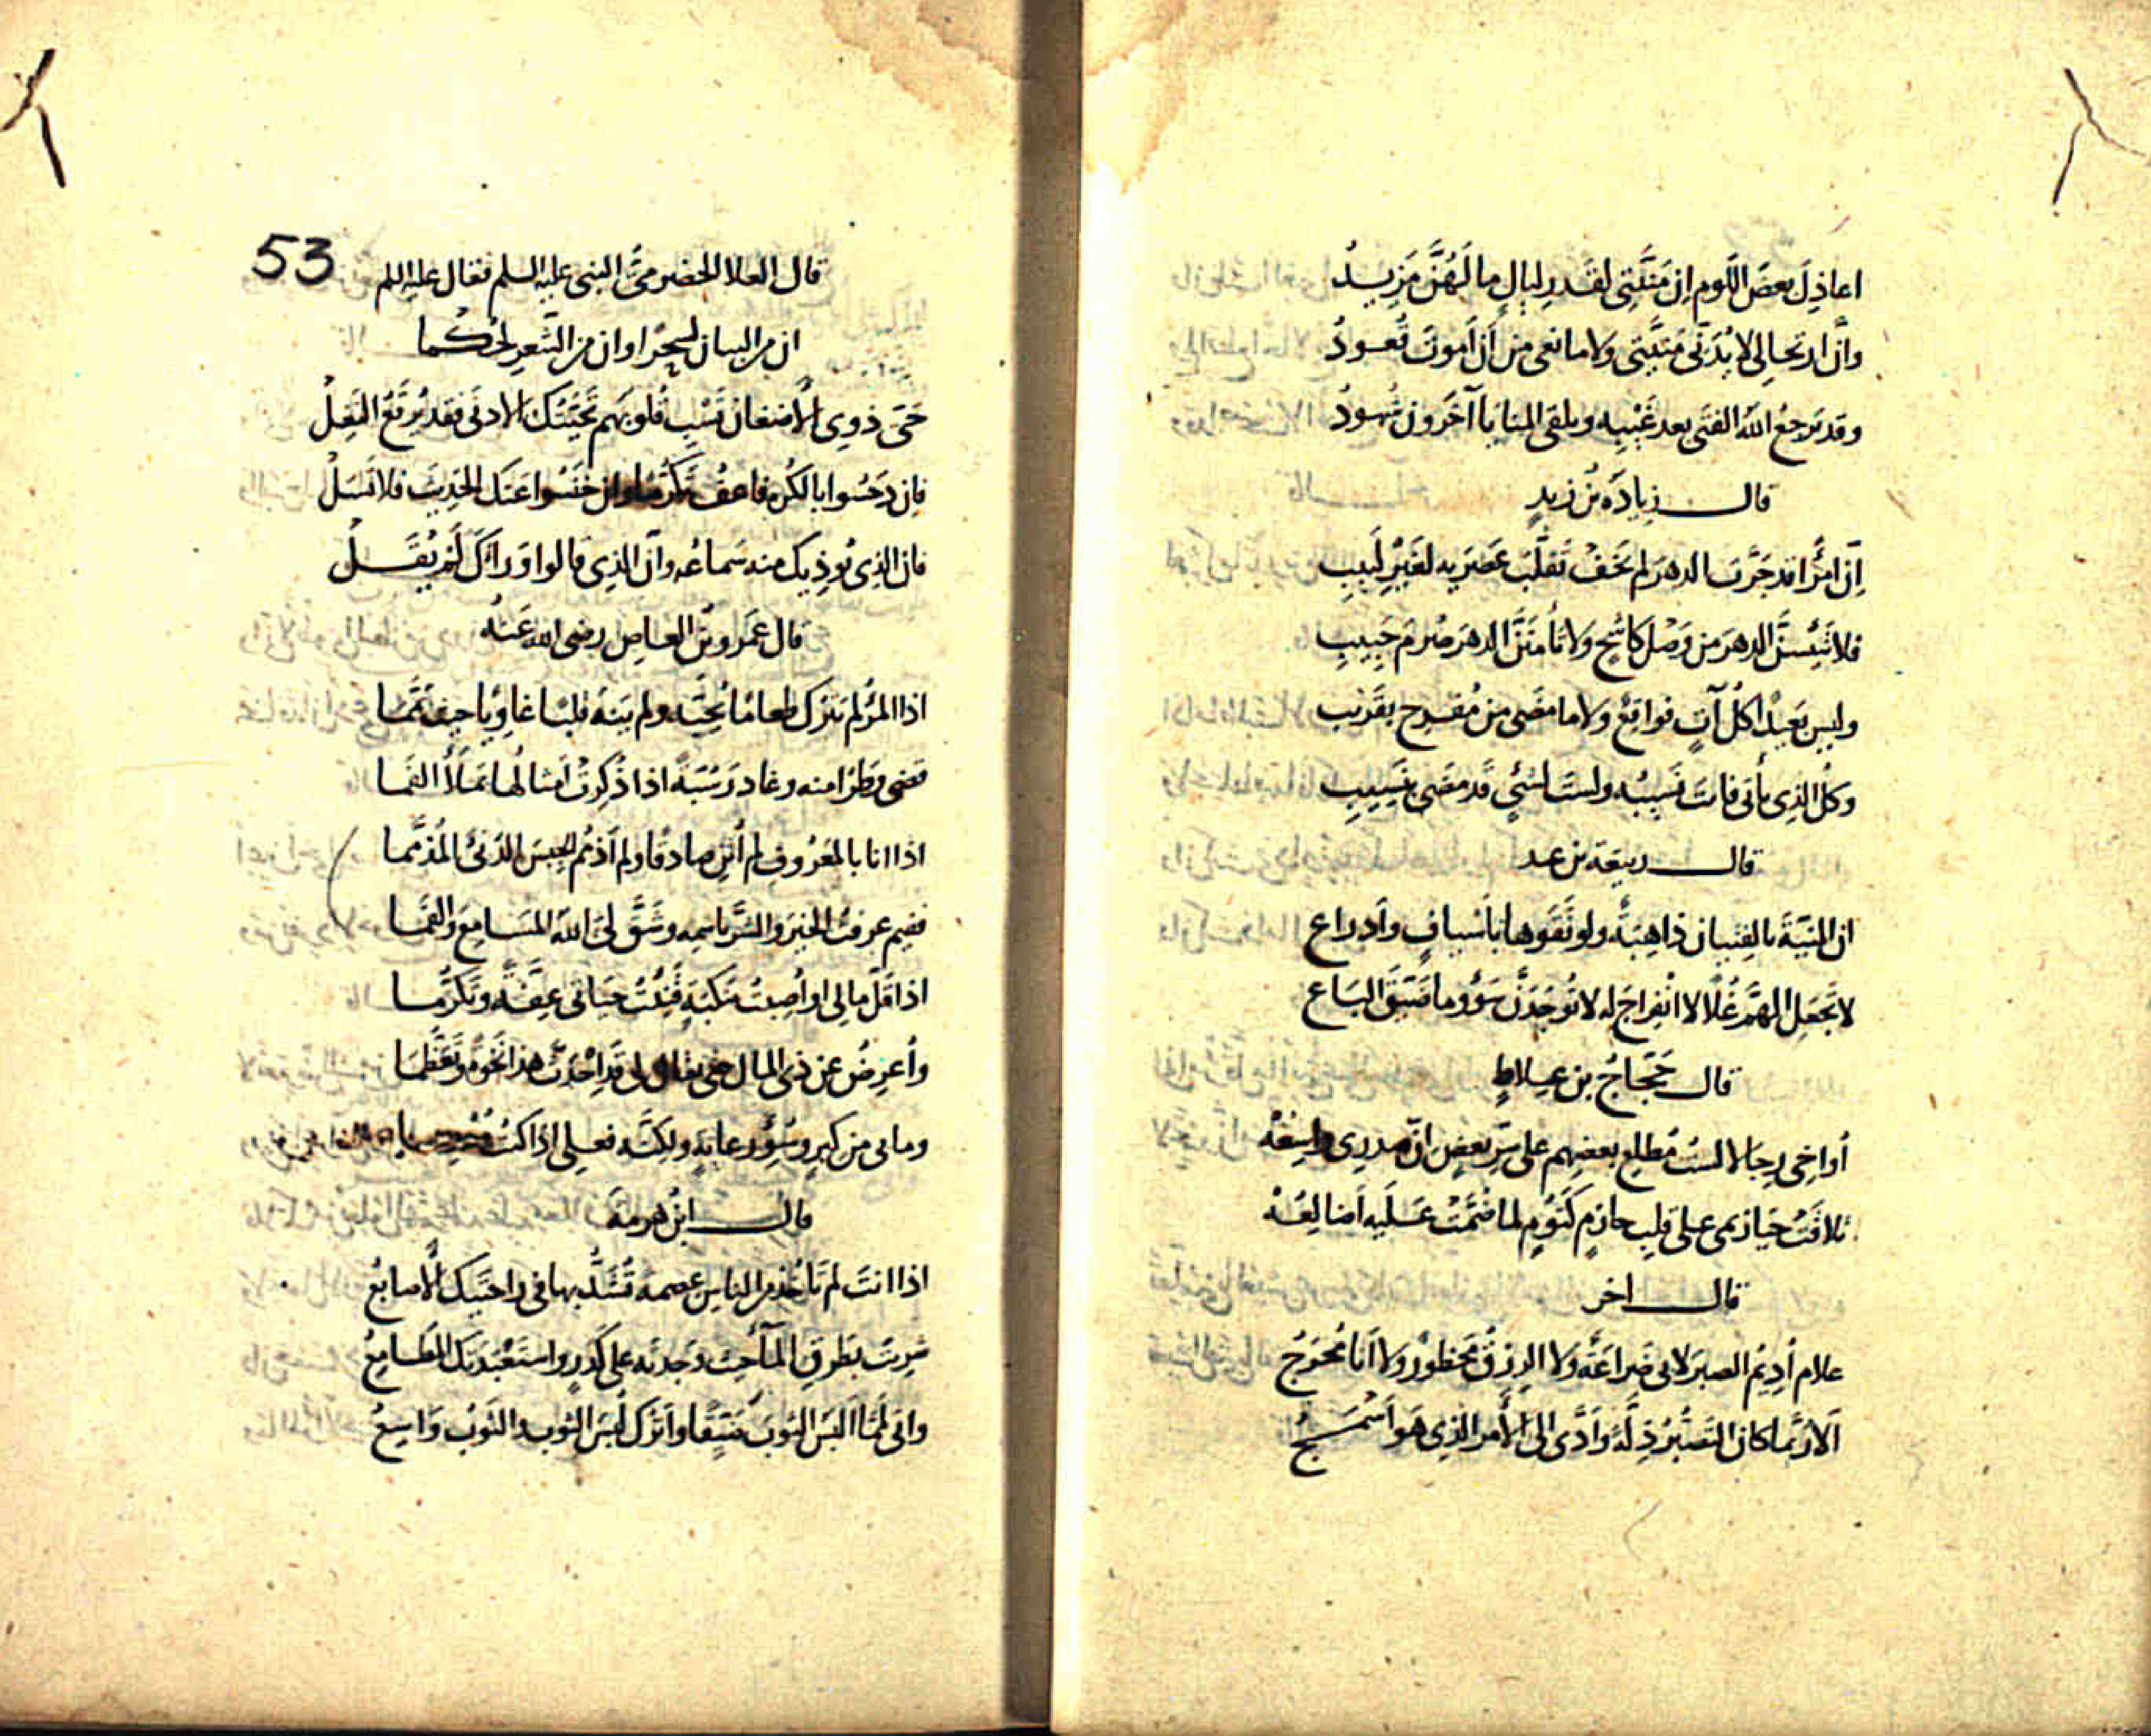 اعاذِلَ بعضَ اللَّوم إنَّ مَنِيَّتى لقَدرِ ليالٍ مالَهُنَّ مَزِيدُ
وانَّ ارتحالى لابُدَّ مَنِيَّتى ولا مانعى من أن أموتَ قُعودُ
وقد يَرجعُ اللهُ الفتى بعد غَيْبِه ويلقى المنايا آخَرون شُهودُ
قال زيادَةُ بنُ زيدٍ
إنَّ امرًا قد جرَّبَ الدهرَ لم يَخَفْ تقلُّبَ عَصْرَيه لغيرُ لَبيبِ
فلا تَيْئَسَنَّ الدهرَ من وَصْلِ كاشِحٍ ولا تأمَنَنَّ الدهرَ صُرمَ حَبِيبِ
وليس بَعِيدًا كلُّ آتٍ فواقعٌ ولا ما مضى من مُفْرِحٍ بقَرِيبِ
وكلُّ الذى يأتى فانتَ نَسِيبُه ولستَ لشئٍ قد مَضَى بنَسِيبِ
قال ربيعَة بن عبد
ان المنيّةَ بالفتيان ذاهبَةٌ ولو تَقَوها بأسيافٍ وأدراعِ
لا تجعلِ الهمَّ غُلًّا لا انفراجَ له لا تُوجَدَنَّ سَؤوما ضَيِّقَ الباعِ
قال حَجّاجُ بن عِلاطٍ
أواخى رجالا لستُ مُطلِعَ بعضِهم على سِرِّ بعضٍ انَّ صدرى واسِعُهْ
تلاقَتْ حيازيمى على قلبِ حازمٍ كَتُومٍ لما ضُمَّتْ عَلَيه أضالِعُهْ
قال اخر
علام أُدِيمُ الصبرَ لا بى ضَراعَةٌ ولا الرزقُ محظورٌ ولا أنا مُحْوَجُ
ألا ربَّما كان التصَبُّرُ ذِلَّةً وأدَّى الى الأمرِ الذى هو أَسْمَجُ
53
قال العلا الحضرمىّ النبى عليه السلم فقال عليه السلم
ان من البيان لسِحْرًا وان من الشِّعرِ لحُكْما
حَىِّ ذوى الأضغان تَسْبِ قُلوبَهم تحيّتَكَ الادنى فقد يُرقَعُ النَّغِلْ
فان دَحَسُوا بالكُرهِ فاعفُ تكرُّمًا وان خَنَسُوا عَنك الحديثَ فلا تَسَلْ
فان الذى يُوذِيك منه سَماعُه وانَّ الذى قالوا وَراءَكَ لَم يُقَلْ
قال عَمرو بن العاصِ رضى الله عَنه
اذا المرُ لم يترك طعامًا يُحِبُّه ولم يَنهَ قلبًا غاوِيًا حيثُ يمَّما
قضى وطَرًا منه وغادر سُبَّةً اذا ذُكِرتْ أمثالُها تملأُ الفَما
اذا انا بالمعُروفِ لم أُثنِ صادقًا ولم أذمُمِ الجِبسَ الدَّنىَّ المُذمَّما
ففيم عرفتُ الخيرَ والشرَّ باسمِه وشَقَّ لىَ اللهُ المسَامِعَ والفَما
اذا قلَّ مالى او أُصِبتُ بنكبَةٍ قَنِيتُ حيائى عِفَّةً وتكرُّما
وأُعرِضُ عن ذى المال حتى يقال لى قد احْدَثَ هذا نَخْوَةً وتعَظُّما
وما بى من كبرٍ وسُؤِ رعايةٍ ولكنَّه فعلى اذا كنتُ
قال ابنُ هرمةَ
اذا انتَ لم تأخُذ من الناسِ عصمةً تُشَدُّ بها فى راحتَيك الأصابعُ
شربتَ بطَرقِ المآ حيث وَجدتَه على كَدَرٍ واستَعْبَدَتكَ المَطامِعُ
وانى لمّا ألبَسُ الثوبَ ضَيِّقًا وأترك لُبسَ الثوبِ والثوبُ واسِعُ